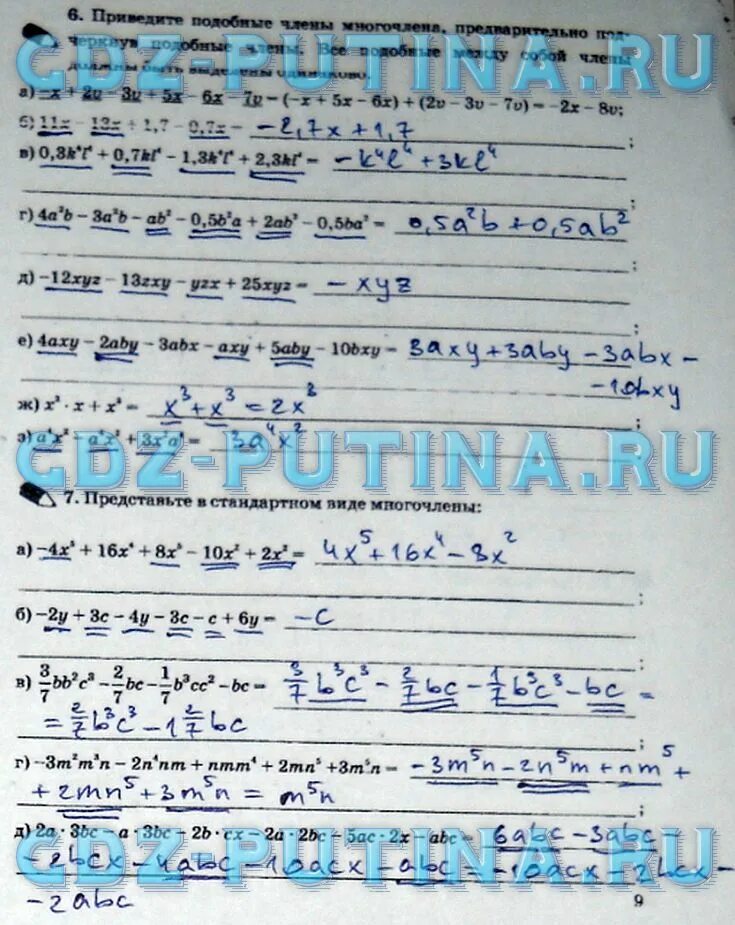 6. Приведите подобные члены многочлена, предварительно под-
черкнув подобные члены. Все подобные между собой члены
должны быть выделены одинаково.
GDZ-PUTINA.RU
а) −x + 2v − 3v + 5x − 6x − 7v = (−x + 5x − 6x) + (2v − 3v − 7v) = −2x − 8v;
б) 11x − 13x + 1,7 − 0,7x = −2,7x + 1,7 ;
в) 0,3k⁴l⁴ + 0,7kl⁴ − 1,3k⁴l⁴ + 2,3kl⁴ = −k⁴l⁴ + 3kl⁴
;
г) 4a²b − 3a²b − ab² − 0,5b²a + 2ab² − 0,5ba² = 0,5a²b + 0,5ab²
;
д) −12xyz − 13zxy − yzx + 25xyz = − xyz
;
е) 4axy − 2aby − 3abx − axy + 5aby − 10bxy = 3axy + 3aby − 3abx −
− 10bxy
ж) x² · x + x³ = x³ + x³ = 2x³ ;
з) a⁴x² − a⁴x² + 3x²a⁴ = 3a⁴x²
GDZ-PUTINA.RU
7. Представьте в стандартном виде многочлены:
а) −4x⁵ + 16x⁴ + 8x⁵ − 10x² + 2x² = 4x⁵ + 16x⁴ − 8x²
;
б) −2y + 3c − 4y − 3c − c + 6y = − c
;
в) 3/7 bb²c³ − 2/7 bc − 1/7 b³cc² − bc = 3/7 b³c³ − 2/7 bc − 1/7 b³c³ − bc =
= 2/7 b³c³ − 1 2/7 bc ;
г) −3m²m³n − 2n⁴nm + nmm⁴ + 2mn⁵ + 3m⁵n = −3m⁵n − 2n⁵m + nm⁵ +
+ 2mn⁵ + 3m⁵n = m⁵n ;
д) 2a · 3bc − a · 3bc − 2b · cx − 2a · 2bc − 5ac · 2x − abc = 6abc − 3abc −
− 2bcx − 4abc − 10acx − abc = −10acx − 2bcx −
GDZ-PUTINA.RU
− 2abc
9